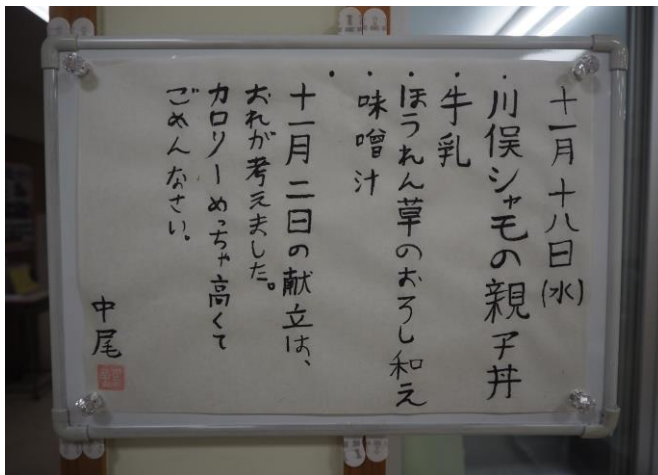 十一月十八日(水)
・川俣シャモの親子丼
・牛乳
・ほうれん草のおろし和え
・味噌汁
十一月二日の献立は、
おれが考えました。
カロリーめっちゃ高くて
ごめんなさい。
中尾